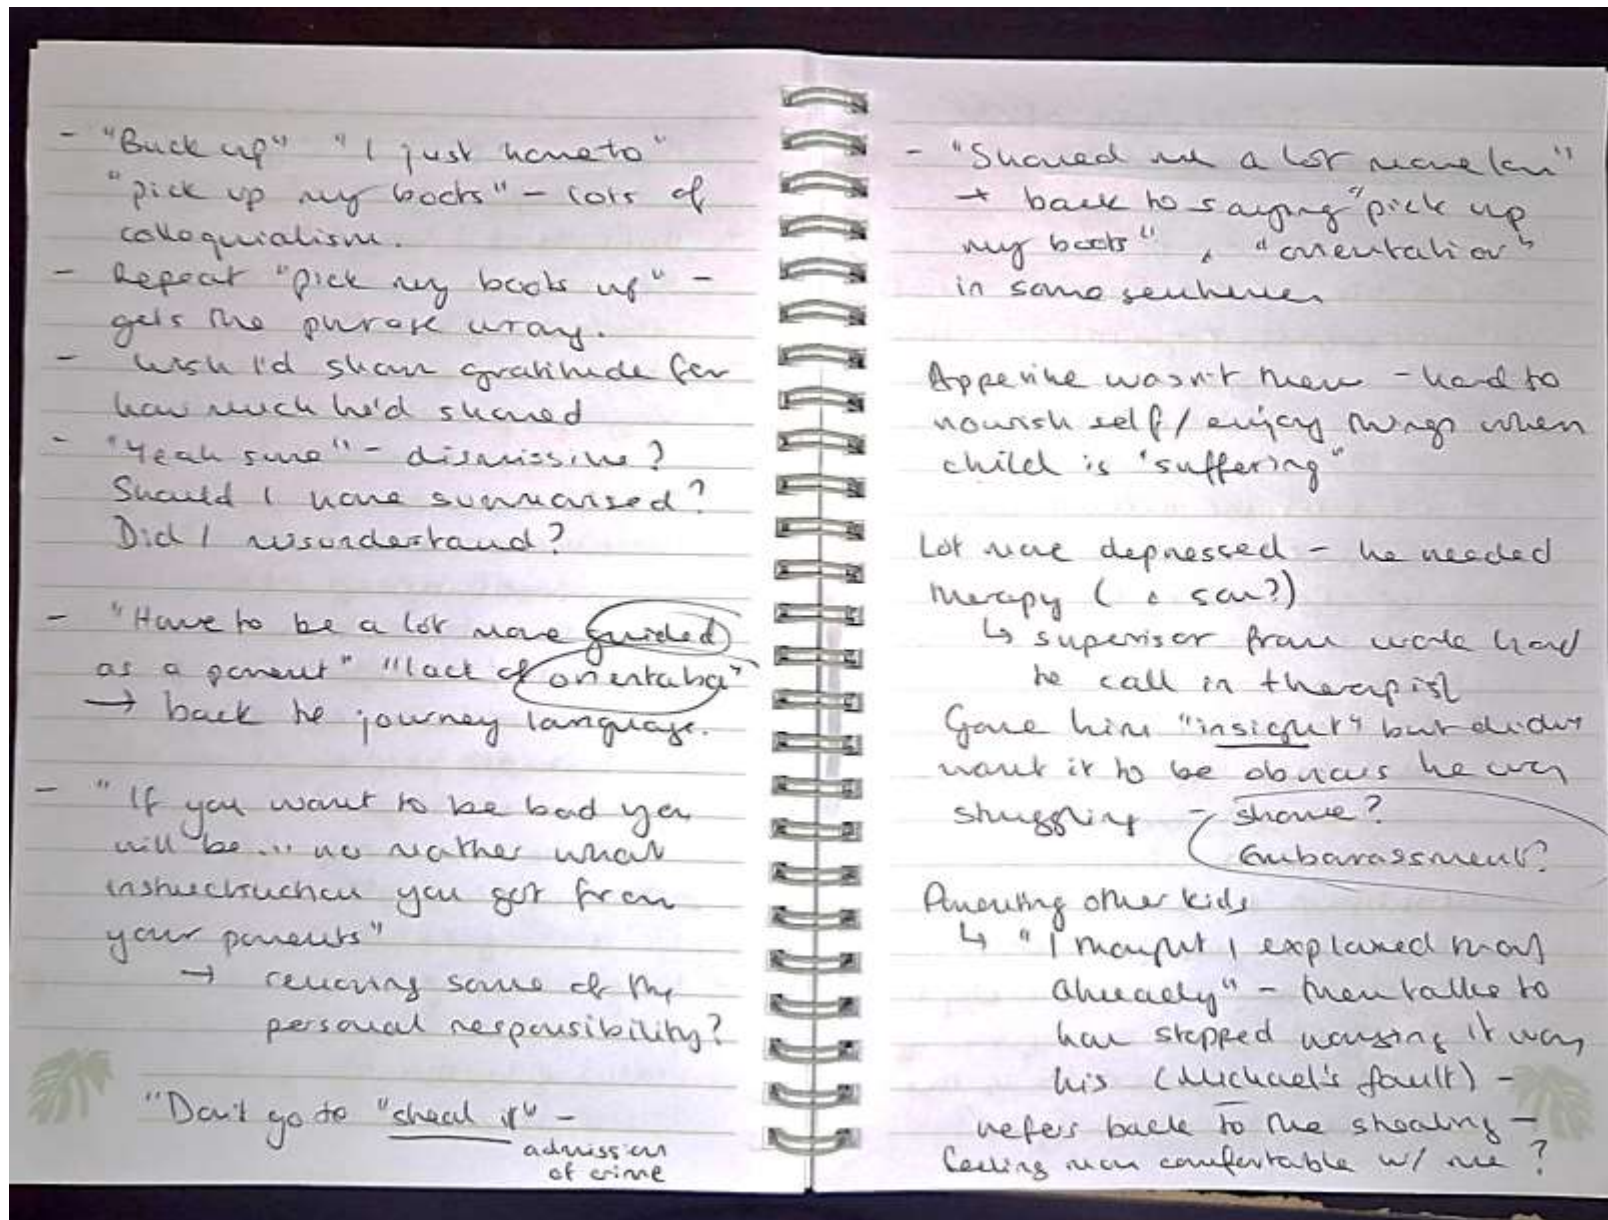 - "Buck up" "I just have to"
"pick up my boots" - lots of
colloquialism.
- Repeat "pick my boots up" -
gets the phrase wrong.
- Wish I'd shown gratitude for
how much he'd shared
- "Yeah sure" - dismissive?
Should I have summarised?
Did I misunderstand?
- "Have to be a lot more guided
as a parent" "lack of orientatio"
→ back to journey language.
- "If you want to be bad you
will be ... no mather what
you got from
your parents"
→ removing some of the
personal responsibility?
"Don't go to "steal it" -
admission
of crime
- "Showed me a lot more
→ back to saying "pick up
my boots", "orientation"
in same sentence
Appetite wasn't there - hard to
nourish self / enjoy things when
child is "suffering"
Lot more depressed - he needed
therapy ( & son?)
↳ supervisor from work had
to call in therapist
Gave him "insight" but didn't
want it to be obvious he was
struggling - shame?
Embarassment?
Parenting other kids
↳ "I thought I explained that
already" - then talks to
how stopped it was
his (Michael's fault) -
refers back to the stealing -
feeling more comfortable w/ me?